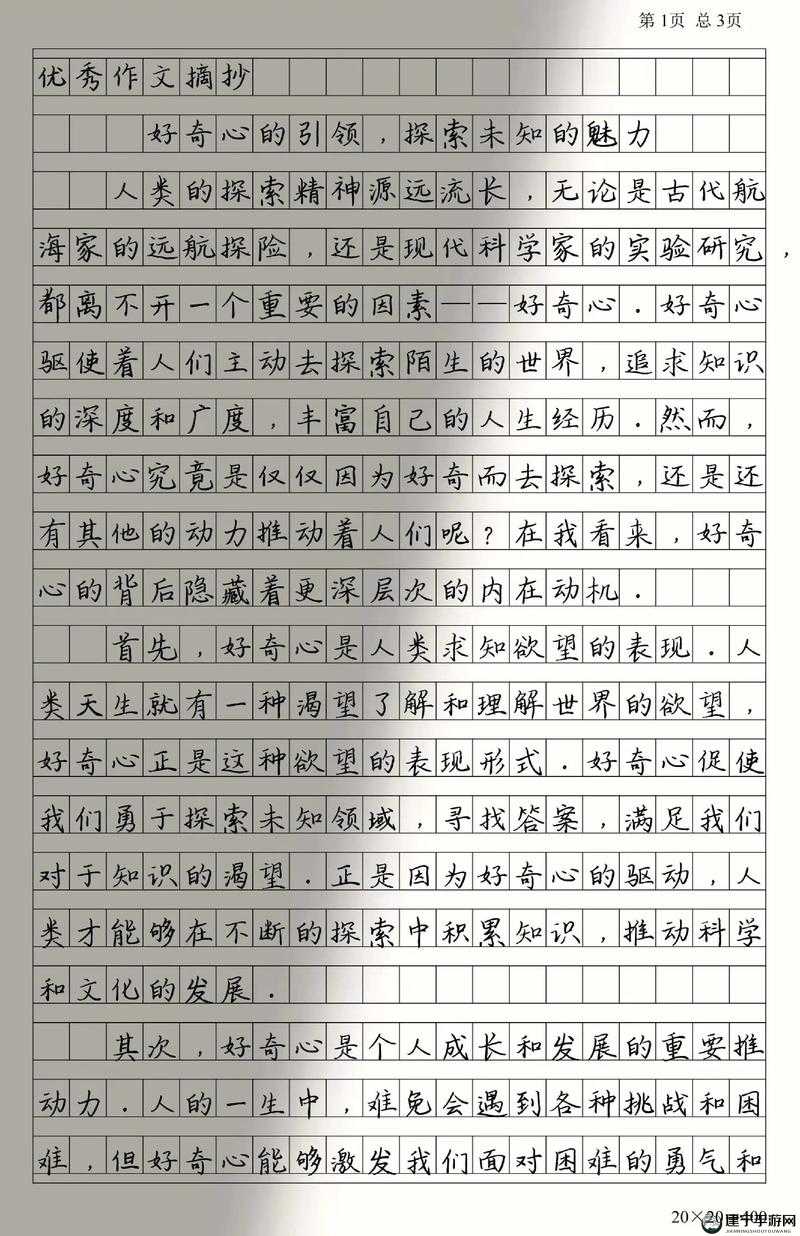 第1页 总3页
优秀作文摘抄
好奇心的引领，探索未知的魅力
人类的探索精神源远流长，无论是古代航
海家的远航探险，还是现代科学家的实验研究，
都离不开一个重要的因素——好奇心．好奇心
驱使着人们主动去探索陌生的世界，追求知识
的深度和广度，丰富自己的人生经历．然而，
好奇心究竟是仅仅因为好奇而去探索，还是还
有其他的动力推动着人们呢？在我看来，好奇
心的背后隐藏着更深层次的内在动机．
首先，好奇心是人类求知欲望的表现．人
类天生就有一种渴望了解和理解世界的欲望，
好奇心正是这种欲望的表现形式．好奇心促使
我们勇于探索未知领域，寻找答案，满足我们
对于知识的渴望．正是因为好奇心的驱动，人
类才能够在不断的探索中积累知识，推动科学
和文化的发展．
其次，好奇心是个人成长和发展的重要推
动力．人的一生中，难免会遇到各种挑战和困
难，但好奇心能够激发我们面对困难的勇气和
20×20=400
建宁手游网
JIANNINGSHOUYOUWANG